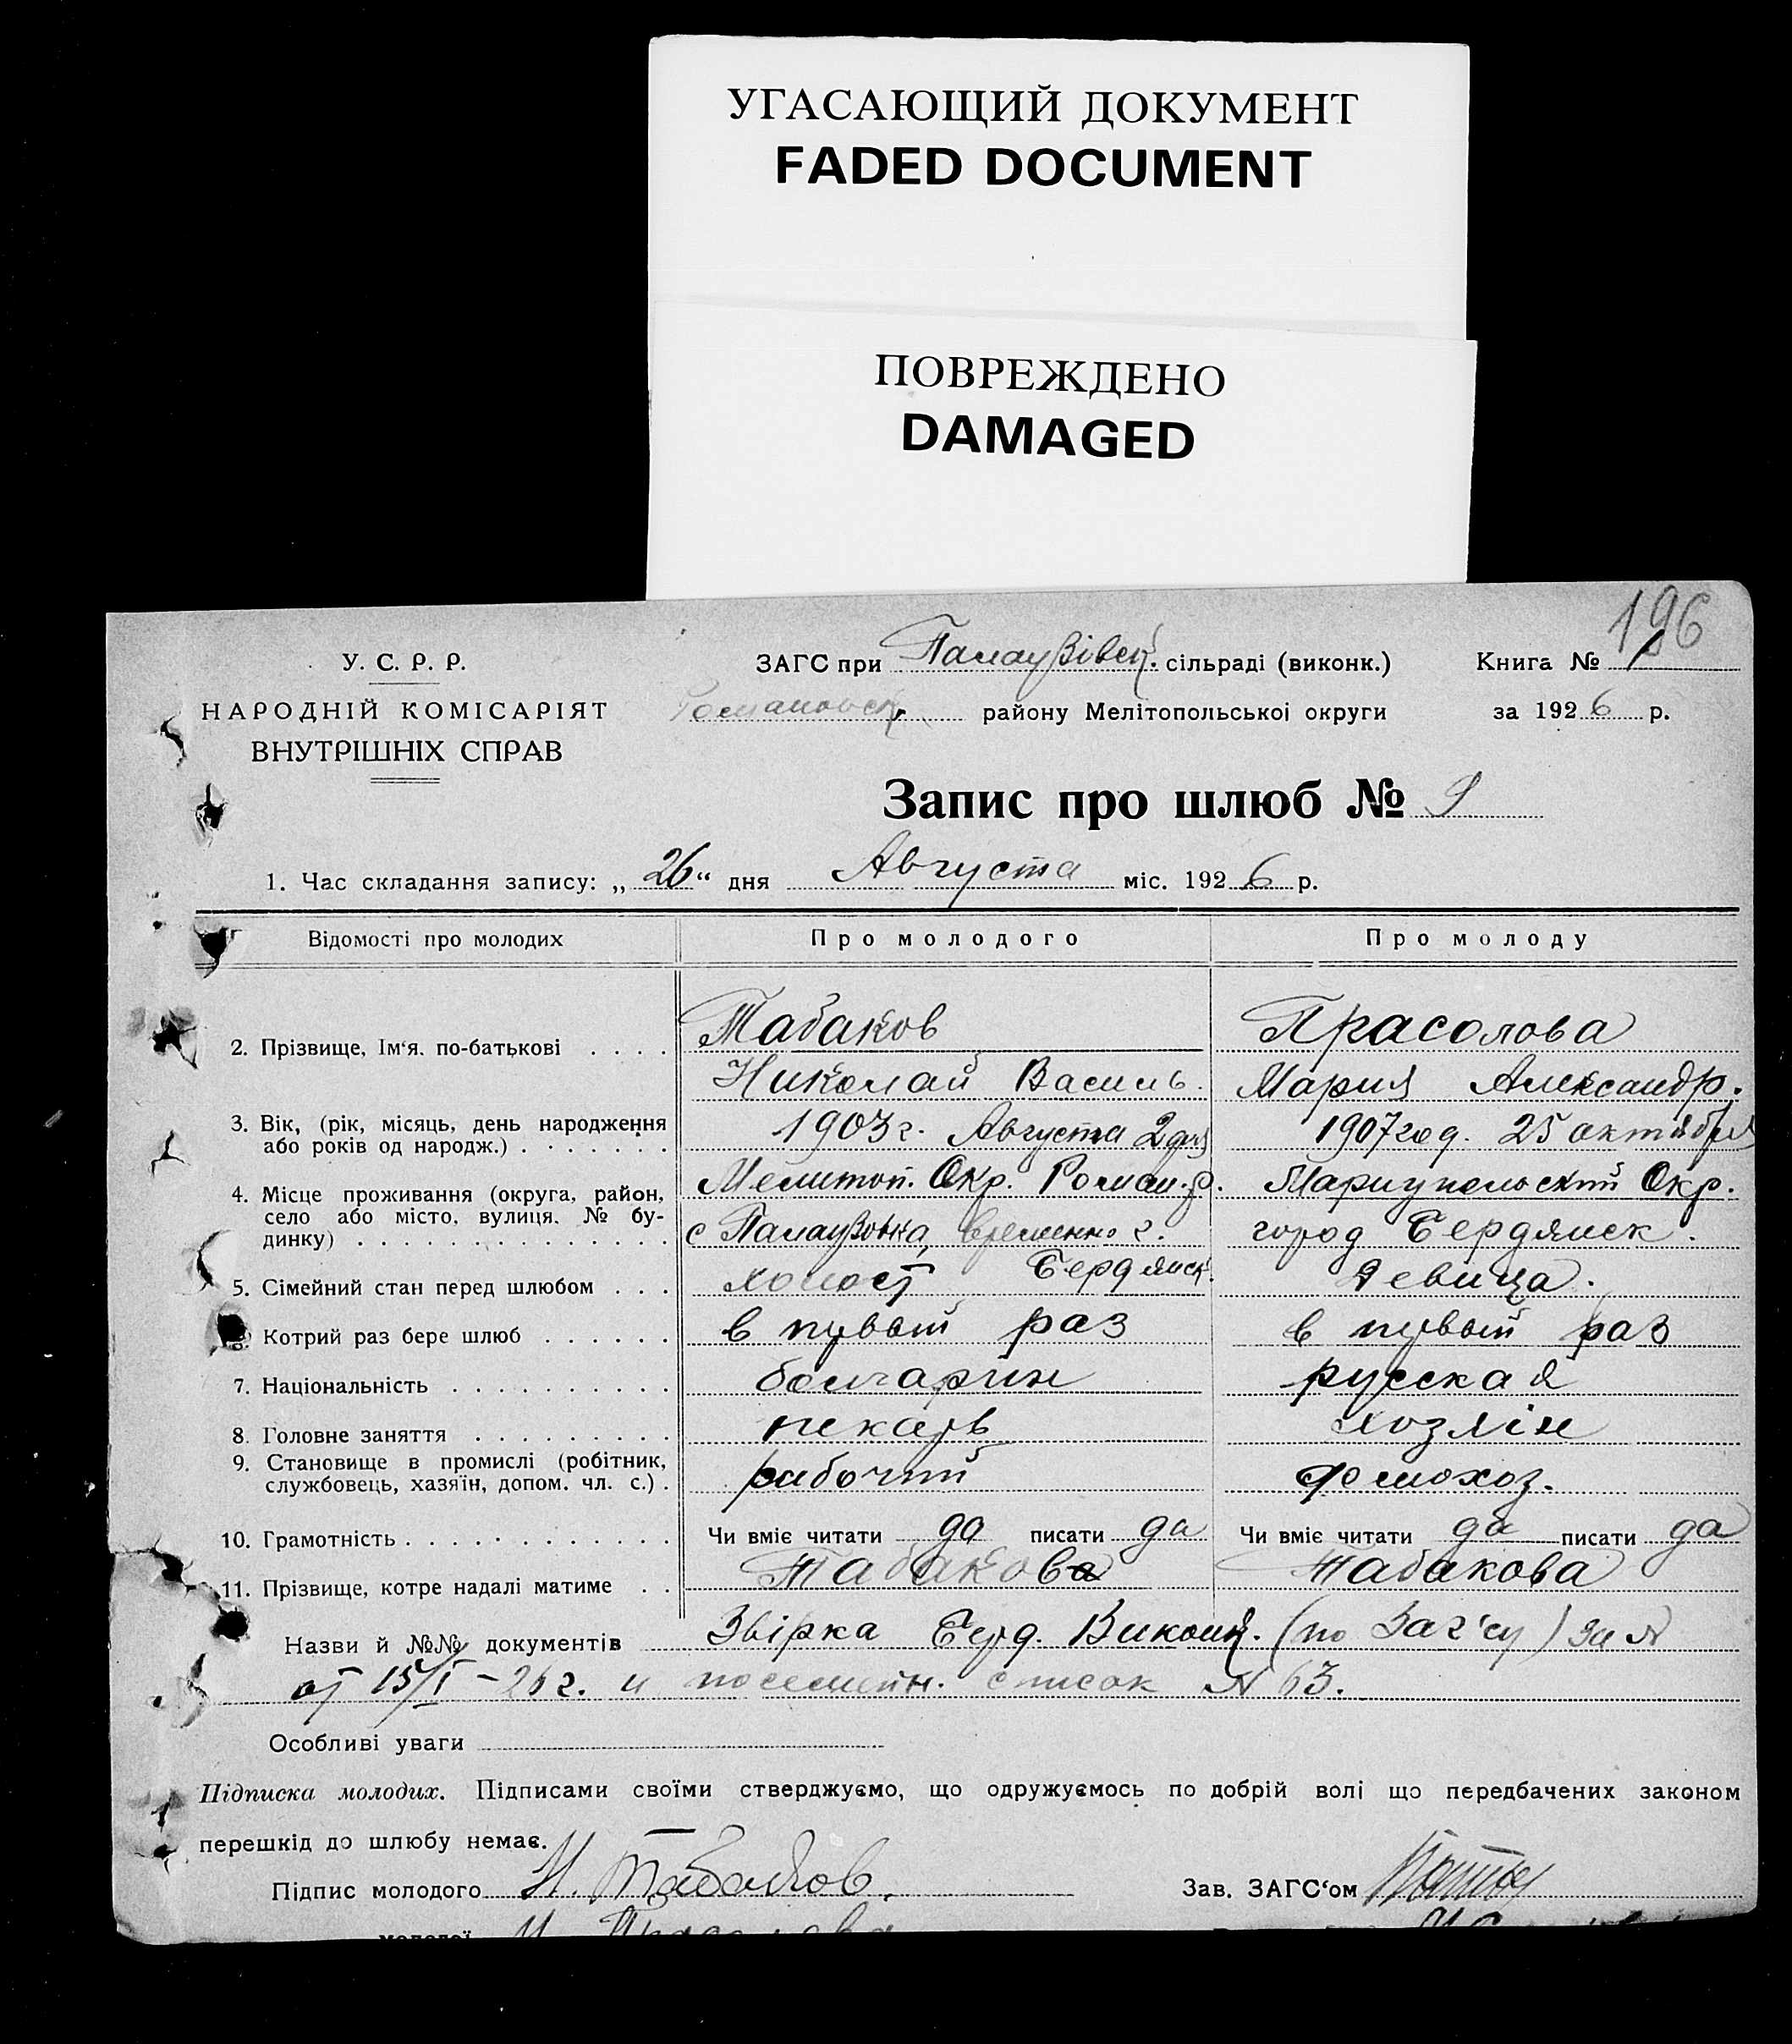 УГАСАЮЩИЙ ДОКУМЕНТ
FADED DOCUMENT
ПОВРЕЖДЕНО
DAMAGED
196
У. С. Р. Р.
НАРОДНІЙ КОМІСАРІЯТ
ВНУТРІШНІХ СПРАВ
ЗАГС при Палаузівськ. сільраді (виконк.) Книга № 1
Романовск. району Мелітопольскої округи за 1926 р.
Запис про шлюб № 9
1. Час складання запису: „26“ дня Августа міс. 1926 р.
Відомості про молодих Про молодого Про молоду
2. Прізвище, Ім‘я. по-батькові . . . . Табаков Прасолова
Николай Василь. Мария Александр.
3. Вік, (рік, місяць, день народження
або років од народж.) . . . . . . . 1903 г. Августа 2 дня 1907 год. 25 октября
4. Місце проживання (округа, район, Мелитоп. Окр. Роман. р. Мариупольский Окр.
село або місто, вулиця. № бу-
динку) . . . . . . . . . . . . . . с Палаузовка, временно г. город Бердянск.
5. Сімейний стан перед шлюбом . . . холост Бердянск. Девица.
Котрий раз бере шлюб . . . . . . в первый раз в первый раз
7. Національність . . . . . . . . . . болгарин русская
8. Головне заняття . . . . . . . . . пекарь хозяін
9. Становище в промислі (робітник,
службовець, хазяїн, допом. чл. с.) . рабочий домохоз.
10. Грамотність . . . . . . . . . . . . Чи вміє читати да писати да Чи вміє читати да писати да
11. Прізвище, котре надалі матиме . . Табаков Табакова
Назви й №№ документів Звірка Берд. Виконк. (по Заг'су) за N
от 15/I – 26 г. и посемейн. список N 63.
Особливі уваги
Підписка молодих. Підписами своїми стверджуємо, що одружуємось по добрій волі що передбачених законом
перешкід до шлюбу немає.
Підпис молодого Н. Табаков. Зав. ЗАГС‘ом
молодої М. Прасолова